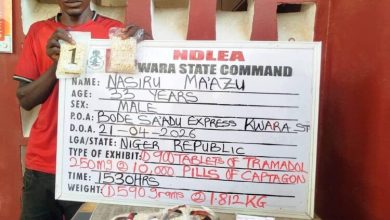 1
NDLEA
KWARA STATE COMMAND
NAME: NASIRU MA'AZU
AGE: 32 YEARS
SEX: MALE
P.O.A: BODE SA'ADU EXPRESS KWARA ST
D.O.A: 21-04-2026
LGA/STATE: NIGER REPUBLIC
TYPE OF EXHIBIT: ① 900 TABLETS OF TRAMADAL
250MG ② 10,000 PILLS OF CAPTAGON
TIME: 1530HRS
WEIGHT: ① 590 grams ② 1.812 KG